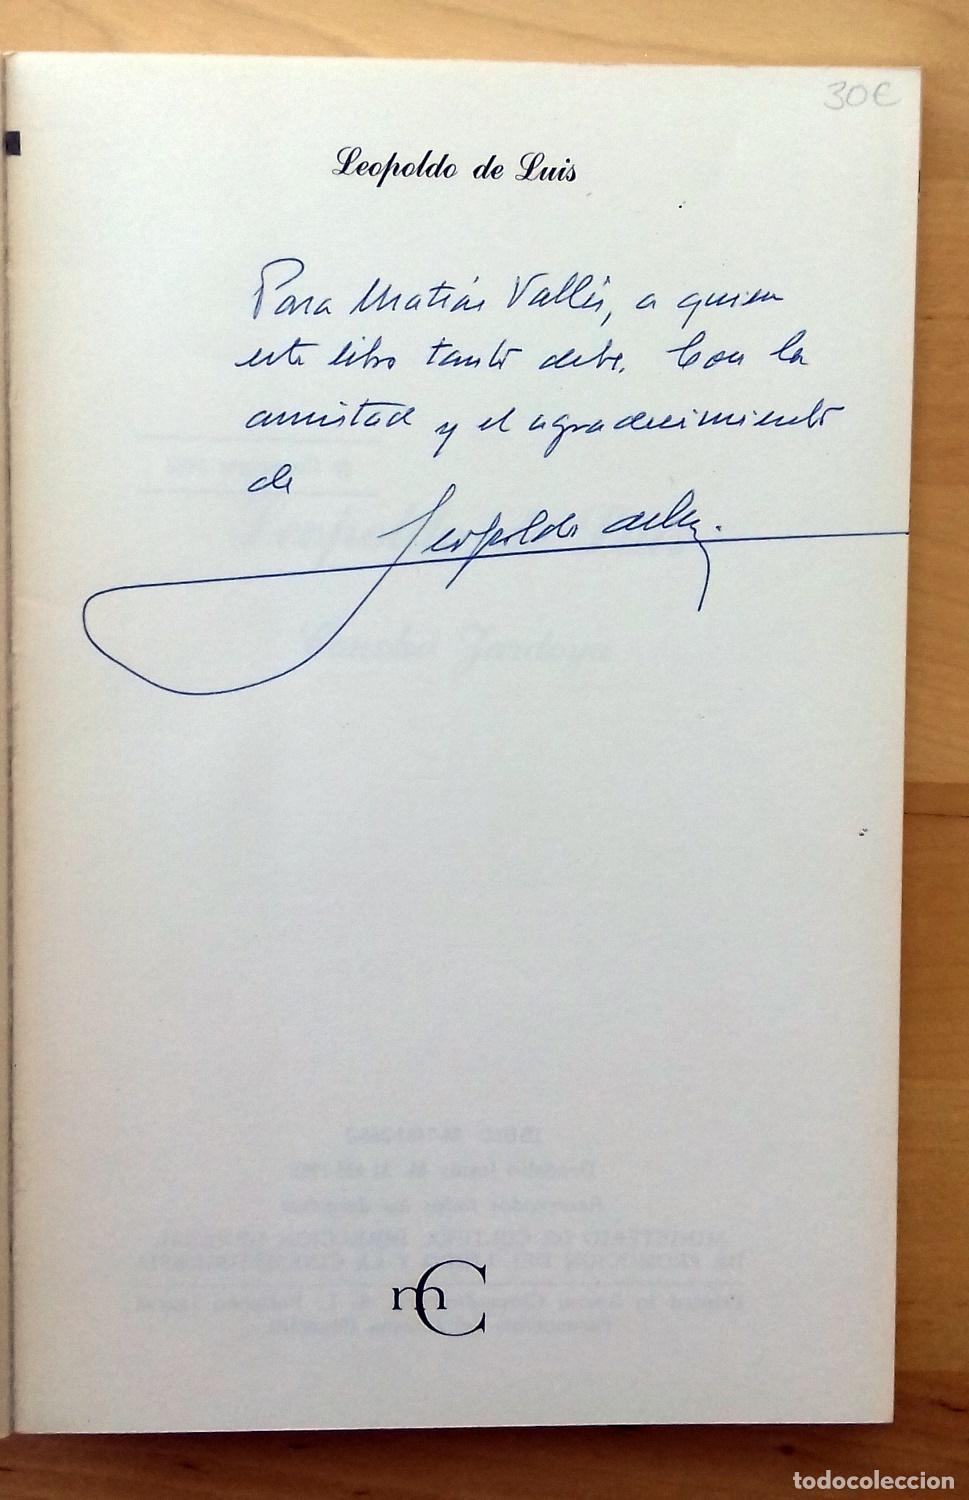 30€
Leopoldo de Luis
Para Matías Vallés, a quien
este libro tanto debe. Con la
amistad y el agradecimiento
de
Leopoldo de Luis.
mC
todocoleccion